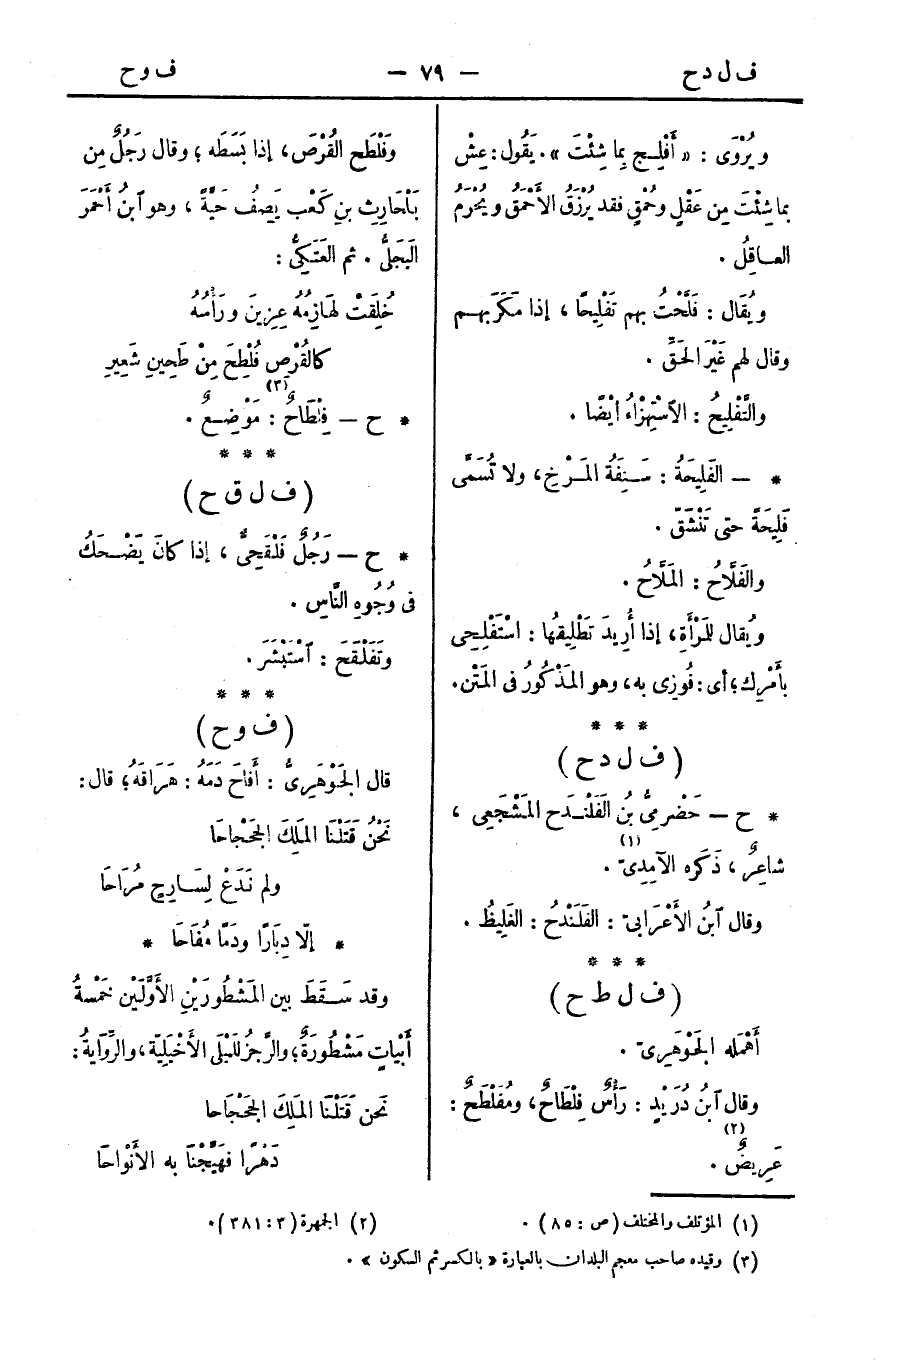 ف ل د ح — ٧٩ — ف و ح
ويُرْوَى : « أَفْلِـج بِمَا شِئْتَ » . يَقُول : عِشْ
بما شِئْتَ مِن عَقْلٍ وحُمْقٍ فقد يُرْزَقُ الأَحْمَقُ ويُحْرَم
العـاقِلُ .
ويُقَال : فَلَّحْتُ بهم تَفْلِيحًا ، إذا مَكَرَ بهـم
وقال لهم غَيْرَ الحَقِّ .
والتَّفْلِيحُ : الٱسْتِهْزاءُ أَيْضًا .
* — الفَلِيحَةُ : سَـنِفَةُ المَـرْخِ ، ولا تُسَمَّى
فَلِيحَةً حتى تَنْشَقّ .
والفَلَّاحُ : المَلَّاحُ .
ويُقال للمَرْأَةِ ، إذا أُرِيدَ تَطْلِيقُها : اسْتَفْلِحِى
بأَمْرِك ؛ أى : فُوزِى به ، وهو المَذْكُورُ فى المَتْن .
* * *
( ف ل د ح )
* ح — حَضْرَمِىُّ بْنُ الفَلَنْـدَح المَشْجَعِى ،
شاعِرٌ ، ذَكَره الآمِدِىّ (١) .
وقال ٱبنُ الأَعْرابىّ : الفَلَنْدَحُ : الغَلِيظُ .
* * *
( ف ل ط ح )
أَهْمَله الجَوْهَرِىّ .
وقال ٱبنُ دُرَيْدٍ : رَأْسٌ فِلْطَاحٌ ، ومُفَلْطَحٌ :
عَرِيضٌ (٢) .
وفَلْطَح القُرْصَ ، إذا بَسَطَه ؛ وقال رَجُلٌ مِن
بَلْحَارِثِ بنِ كَعْب يَصِفُ حَيَّةً ، وهو ٱبنُ أَحْمَرَ
البَجَلىُّ . ثم العَتَكِىُّ :
خُلِقَتْ لَهَازِمُهُ عِزِينَ ورَأْسُهُ
كالقُرْصِ فُلْطِحَ مِنْ طَحِينِ شَعِيرِ
* ح — فِلْطَاحٌ (٣) : مَوْضِـعٌ .
* * *
( ف ل ق ح )
* ح — رَجُلٌ فَلْقَحِىٌّ ، إذا كانَ يَضْـحَكُ
فى وُجُوهِ النَّاسِ .
وتَفَلْقَحَ : ٱسْتَبْشَرَ .
* * *
( ف و ح )
قال الجَوْهَرِىُّ : أَفَاحَ دَمَهُ : هَرَاقَهُ ؛ قال :
نَحْنُ قَتَلْنَا المَلِكَ الجَحْجاحَا
ولم نَدَعْ لِسَـارِحٍ مُرَاحَا
* إلّا دِيَارًا ودَمًا مُفَاحَا *
وقد سَـقَطَ بين المَشْطُورَيْنِ الأَوَّلَيْن خَمْسةُ
أَبْيَاتٍ مَشْطُورَةً ؛ والرَّجَزُ لِلَيْلَى الأَخْيَلِيَّة ، والرِّوَايةُ :
نَحن قَتَلْنَا المَلِكَ الجَحْجَاحا
دَهْرًا فَهَيَّجْنَا به الأَنْواحَا
(١) المؤتلف والمختلف (ص : ٨٥) . (٢) الجمهرة (٣ : ٣٨١) .
(٣) وقيده صاحب معجم البلدان بالعبارة « بالكسر ثم السكون » .